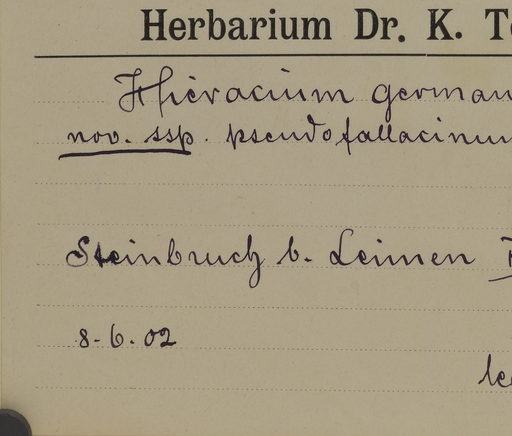 Herbarium Dr. K. T
Hieracium german
nov. ssp. pseudofallacinum
Steinbruch b. Leimen
8-6.02
le